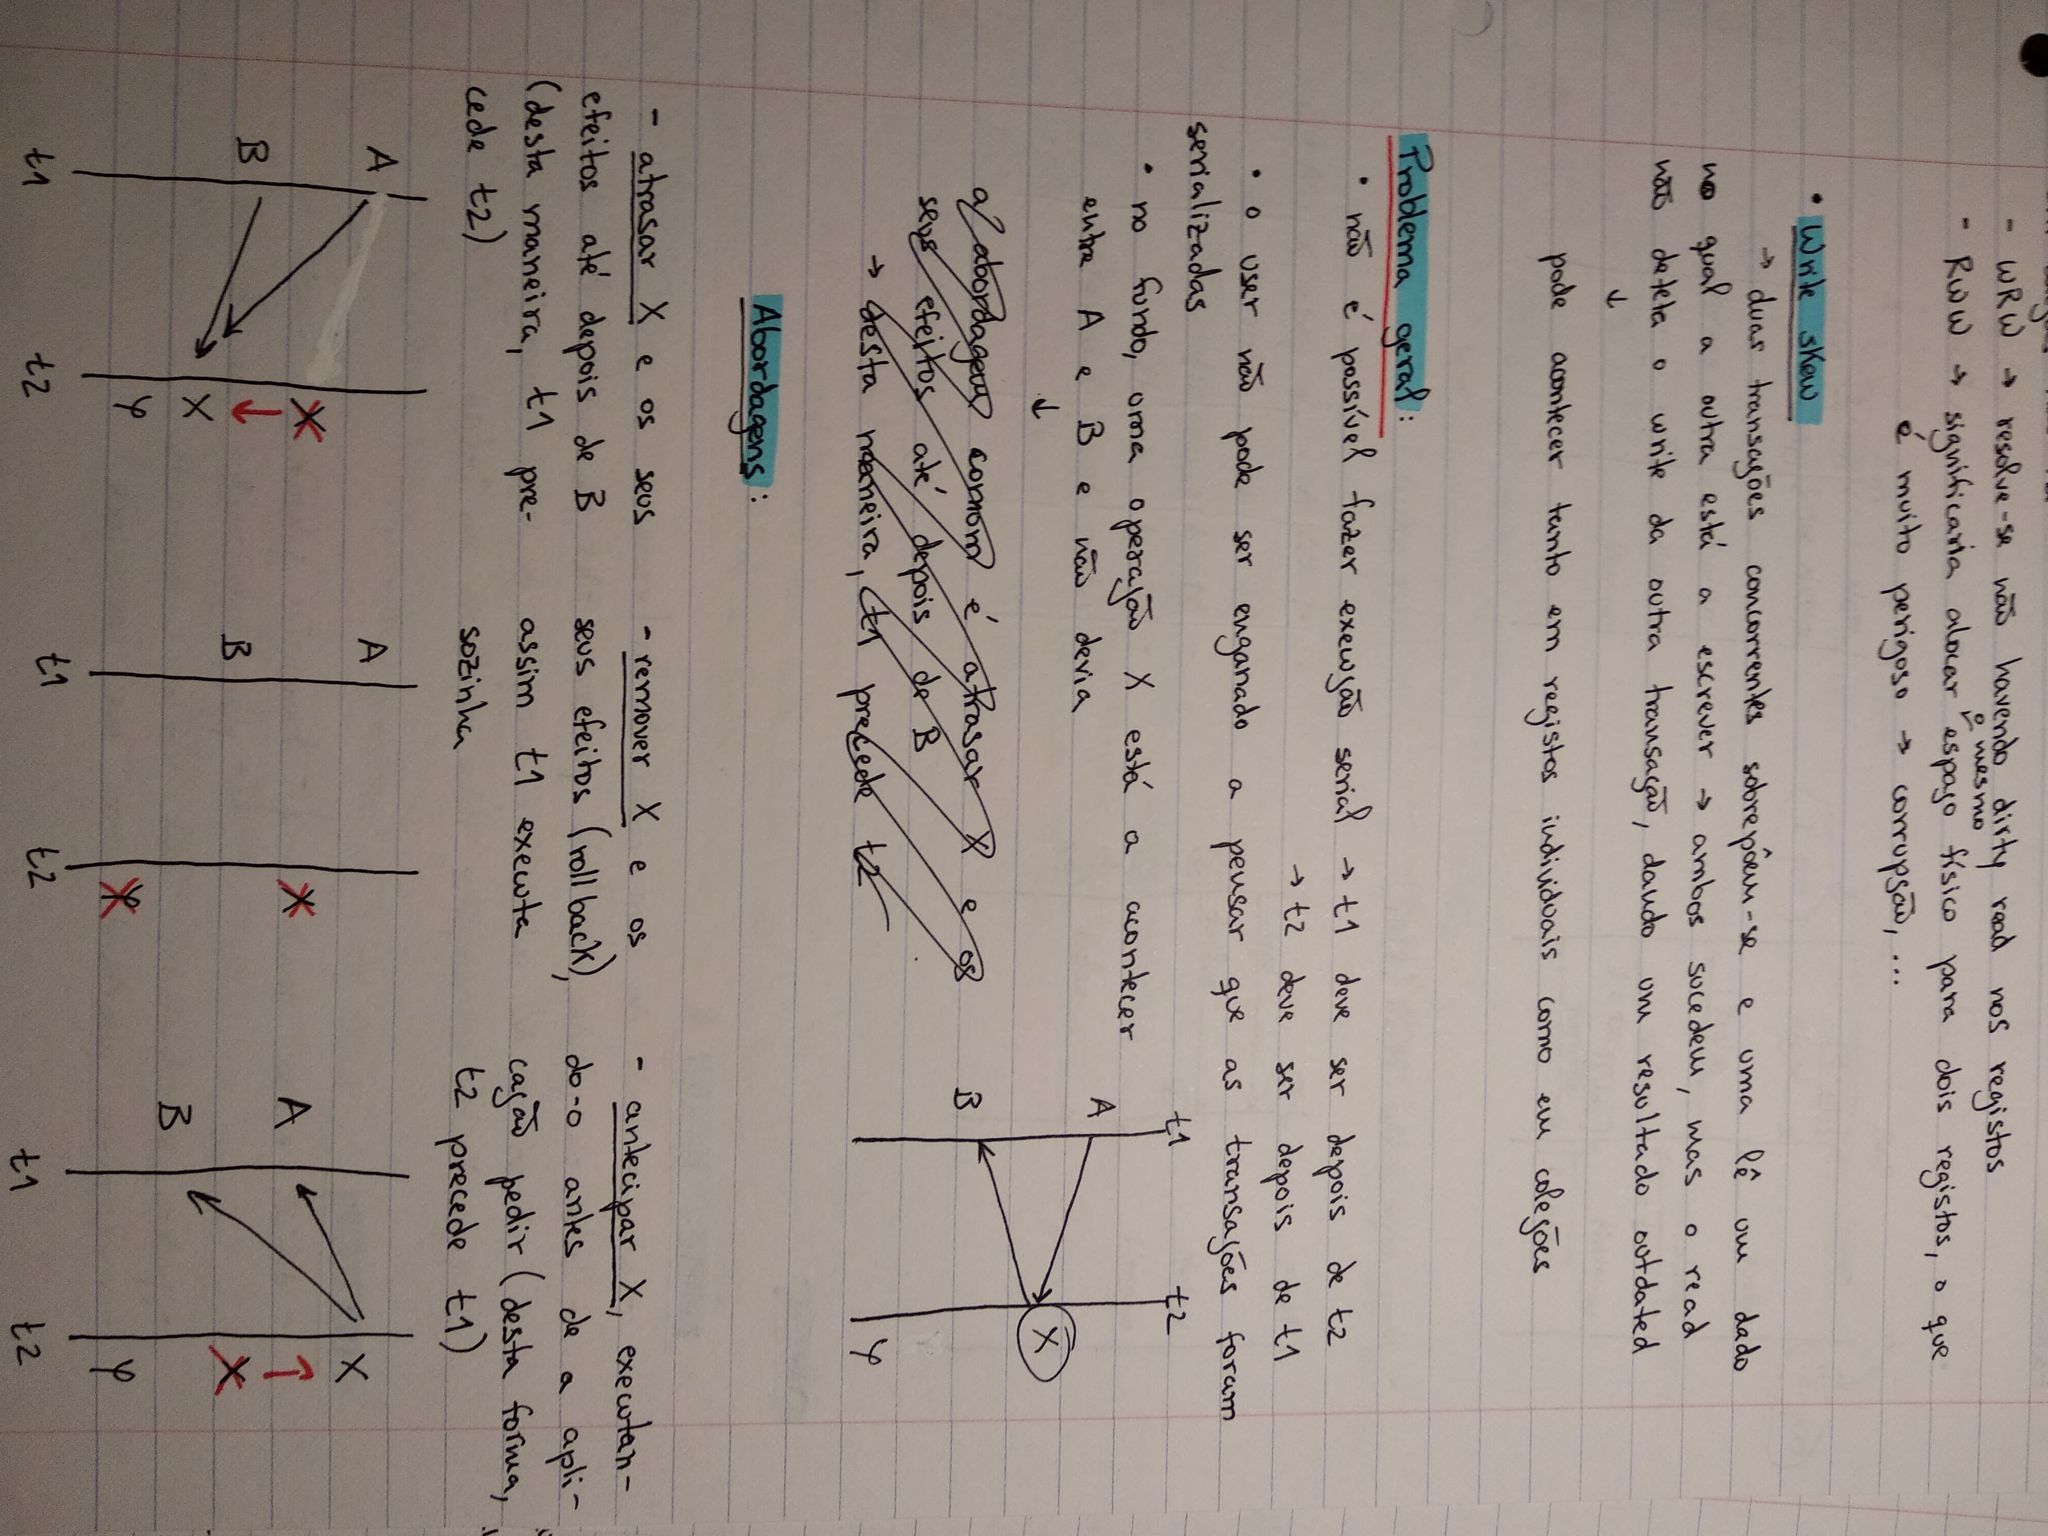 - WRW → resolve-se não havendo dirty read nos registos
- RWW → significaria alocar o mesmo espaço físico para dois registos, o que
é muito perigoso → corrupção, ...
• Write skew
→ duas transações concorrentes sobrepõem-se e uma lê um dado
no qual a outra está a escrever → ambos sucedem, mas o read
não deteta o write da outra transação, dando um resultado outdated
↓
pode acontecer tanto em registos individuais como em coleções
Problema geral:
• não é possível fazer execução serial → t1 deve ser depois de t2
→ t2 deve ser depois de t1
• o user não pode ser enganado a pensar que as transações foram
serializadas
• no fundo, uma operação X está a acontecer
entre A e B e não devia
↓
a abordagem comom é atrasar X e os
seus efeitos até depois de B
→ desta maneira, t1 precede t2
t1 t2
A
X
B
Y
Abordagens:
- atrasar X e os seus
efeitos até depois de B
(desta maneira, t1 pre-
cede t2)
A
X
B
X
Y
t1 t2
- remover X e os
seus efeitos (rollback),
assim t1 executa
sozinha
A
X
B
Y
t1 t2
- antecipar X, executan-
do-o antes de a apli-
cação pedir (desta forma,
t2 precede t1)
X
A
X
B
Y
t1 t2